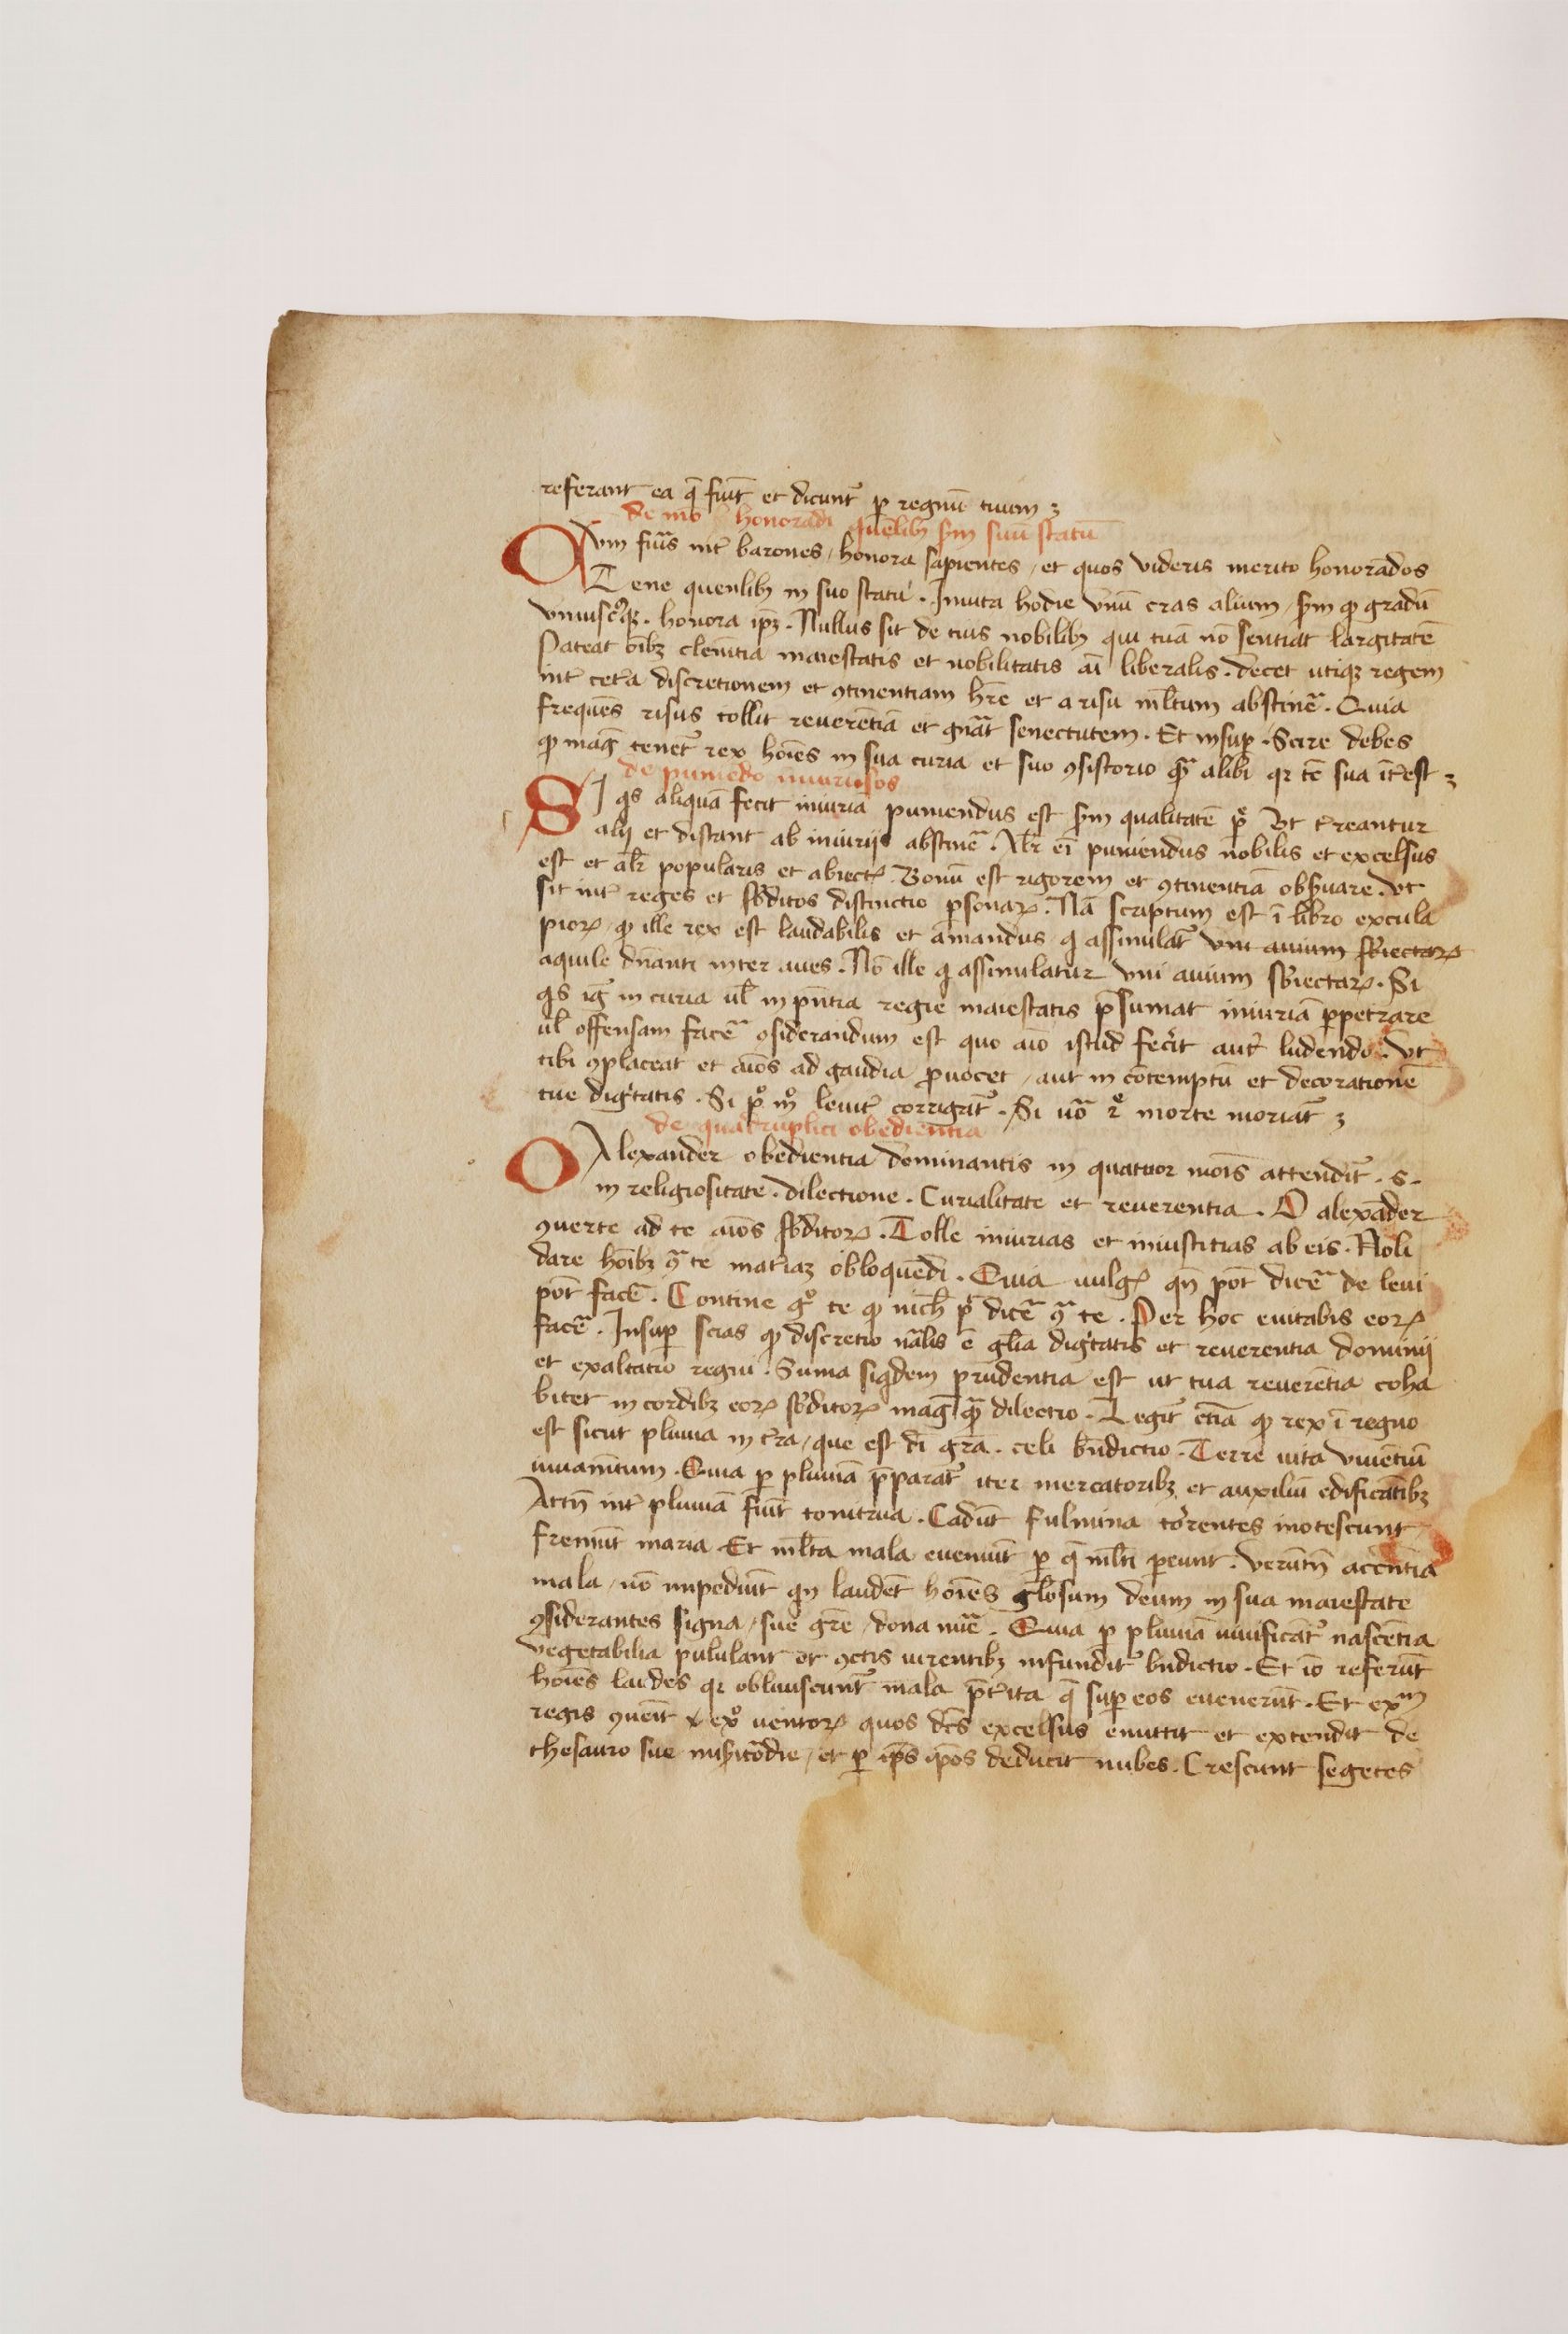 referant ea q̄ fiūt et dicunt᷑ p regnū tuum ꝫ
de mō honorādi quēlibꝫ scdm suū statū
Cum fūis int̄ barones / honora sapientes / et quos videris merito honorādos
Tene quenlibꝫ in suo statu · Inuita hodie vnū cras alium / scdm qꝫ gradū
vniuscꝰqꝫ · honora ip̄ꝫ · Nullus sit de tuis nobilibꝫ qui tuā nō sentiat largitatē
Pateat oībꝫ clem̄tia maiestatis et nobilitatis aī liberalis · decet utiqꝫ regem
int̄ cet̄a discretionem et ꝯtinentiam hr̄e et a risu ml̄tum abstinē · Quia
frequēs risus tollit reuerētiā et gn̄at senectutem · Et insup · Scire debes
qꝫ maḡ tenet᷑ rex hoīes in sua curia et suo ꝯsistorio qᷓ alibi qr tē sua īt̄est ꝫ
de puniēdo iniuriosos
SI qs aliquā fecit iniuriā puniendus est scdm qualitatē pᵒ Vt t̄reantur
alij et distant ab iniurijs abstinē · Al̄r eī puniendus nobilis et excelsus
est et al̄r popularis et abiectꝰ · Bonū est rigorem et ꝯtinentiā obs̄uare · vt
sit int̄ reges et sb̄ditos distinctio ꝑsonaꝝ · Nā scriptum est ī libro excula
pioꝝ · qꝫ ille rex est laudabilis et amandus q assimulat᷑ vni auium sb̄iectaꝝ
aquile dn̄anti inter aues · Nō ille q assimulatur vni auium sb̄iectaꝝ · Si
qs iḡ in curia ul̄ in pn̄tia regie maiestatis p̄sumat iniuriā ꝑpetrare
ul̄ offensam facē ꝯsiderandum est quo aīo istud fec̄it aut̄ ludendo · vt
tibi ꝯplaceat et aīos ad gaudia ꝓuocet / aut in cōtemptū et decorationē
tue diḡtatis · Si pᵒ mᵒ leuit̄ corrigat᷑ · Si uō 2ᵒ morte moriat᷑ ꝫ
de quadruplici obediēntia
O Alexander obedientia dominantis in quatuor mōis attendit᷑ · s ·
in religiositate · dilectione · Curialitate et reuerentia · O alexāder
ꝯuerte ad te aīos sb̄ditoꝝ · Tolle iniurias et iniustitias ab eis · Noli
dare hoībꝫ ꝯᵃ te mat̄iaꝫ obloquēdi · Quia uulgꝰ qn̄ pōt dicē de leui
pōt facē · Contine gᵒ te qꝫ nich̄ pᵗ dicē ꝯᵃ te · Per hoc euitabis eoꝝ
facē · Insup scias qꝫ discretio nālis ē gl̄ia diḡtatis et reuerentia dominij
et exaltatio regni · Suma siqdem prudentia est ut tua reuerētia coha
bitet in cordibꝫ eoꝝ sb̄ditoꝝ maḡ qᷓ dilectio · Legit᷑ etiā qꝫ rex ī regno
est sicut pluuia in t̄ra / que est dī gr̄a · celi bn̄dictio · Terre uita viuētiū
iuuam̄tum · Quia p pluuiā p̄parat᷑ iter mercatoribꝫ et auxiliū edificātibꝫ
Attn̄ int̄ pluuiā fiūt tonitrua · Cadūt fulmina tōrentes inotescunt
fremūt maria · Et ml̄ta mala eueniūt p q̄ ml̄ti pereunt · verūtn̄ accn̄tia
mala / nō impediūt qn laudēt hoīes gl̄osum deum in sua maiestate
ꝯsiderantes signa / sue gr̄e / dona mīe · Quia p pluuiā uiuificāt᷑ nascētia
vegetabilia pululant et ꝯctis uirentibꝫ infundit᷑ bn̄dictio · Et iō referūt
hoīes laudes qr obliuiscunt᷑ mala p̄t̄ita q̄ super eos euenerūt · Et exᵐ
regis ꝯueīt x exᵒ uentoꝝ quos dc̄s excelsus emittit et extendit de
thesauro sue mīsicōdie / et p ip̄s deducit nubes · Crescunt segetes